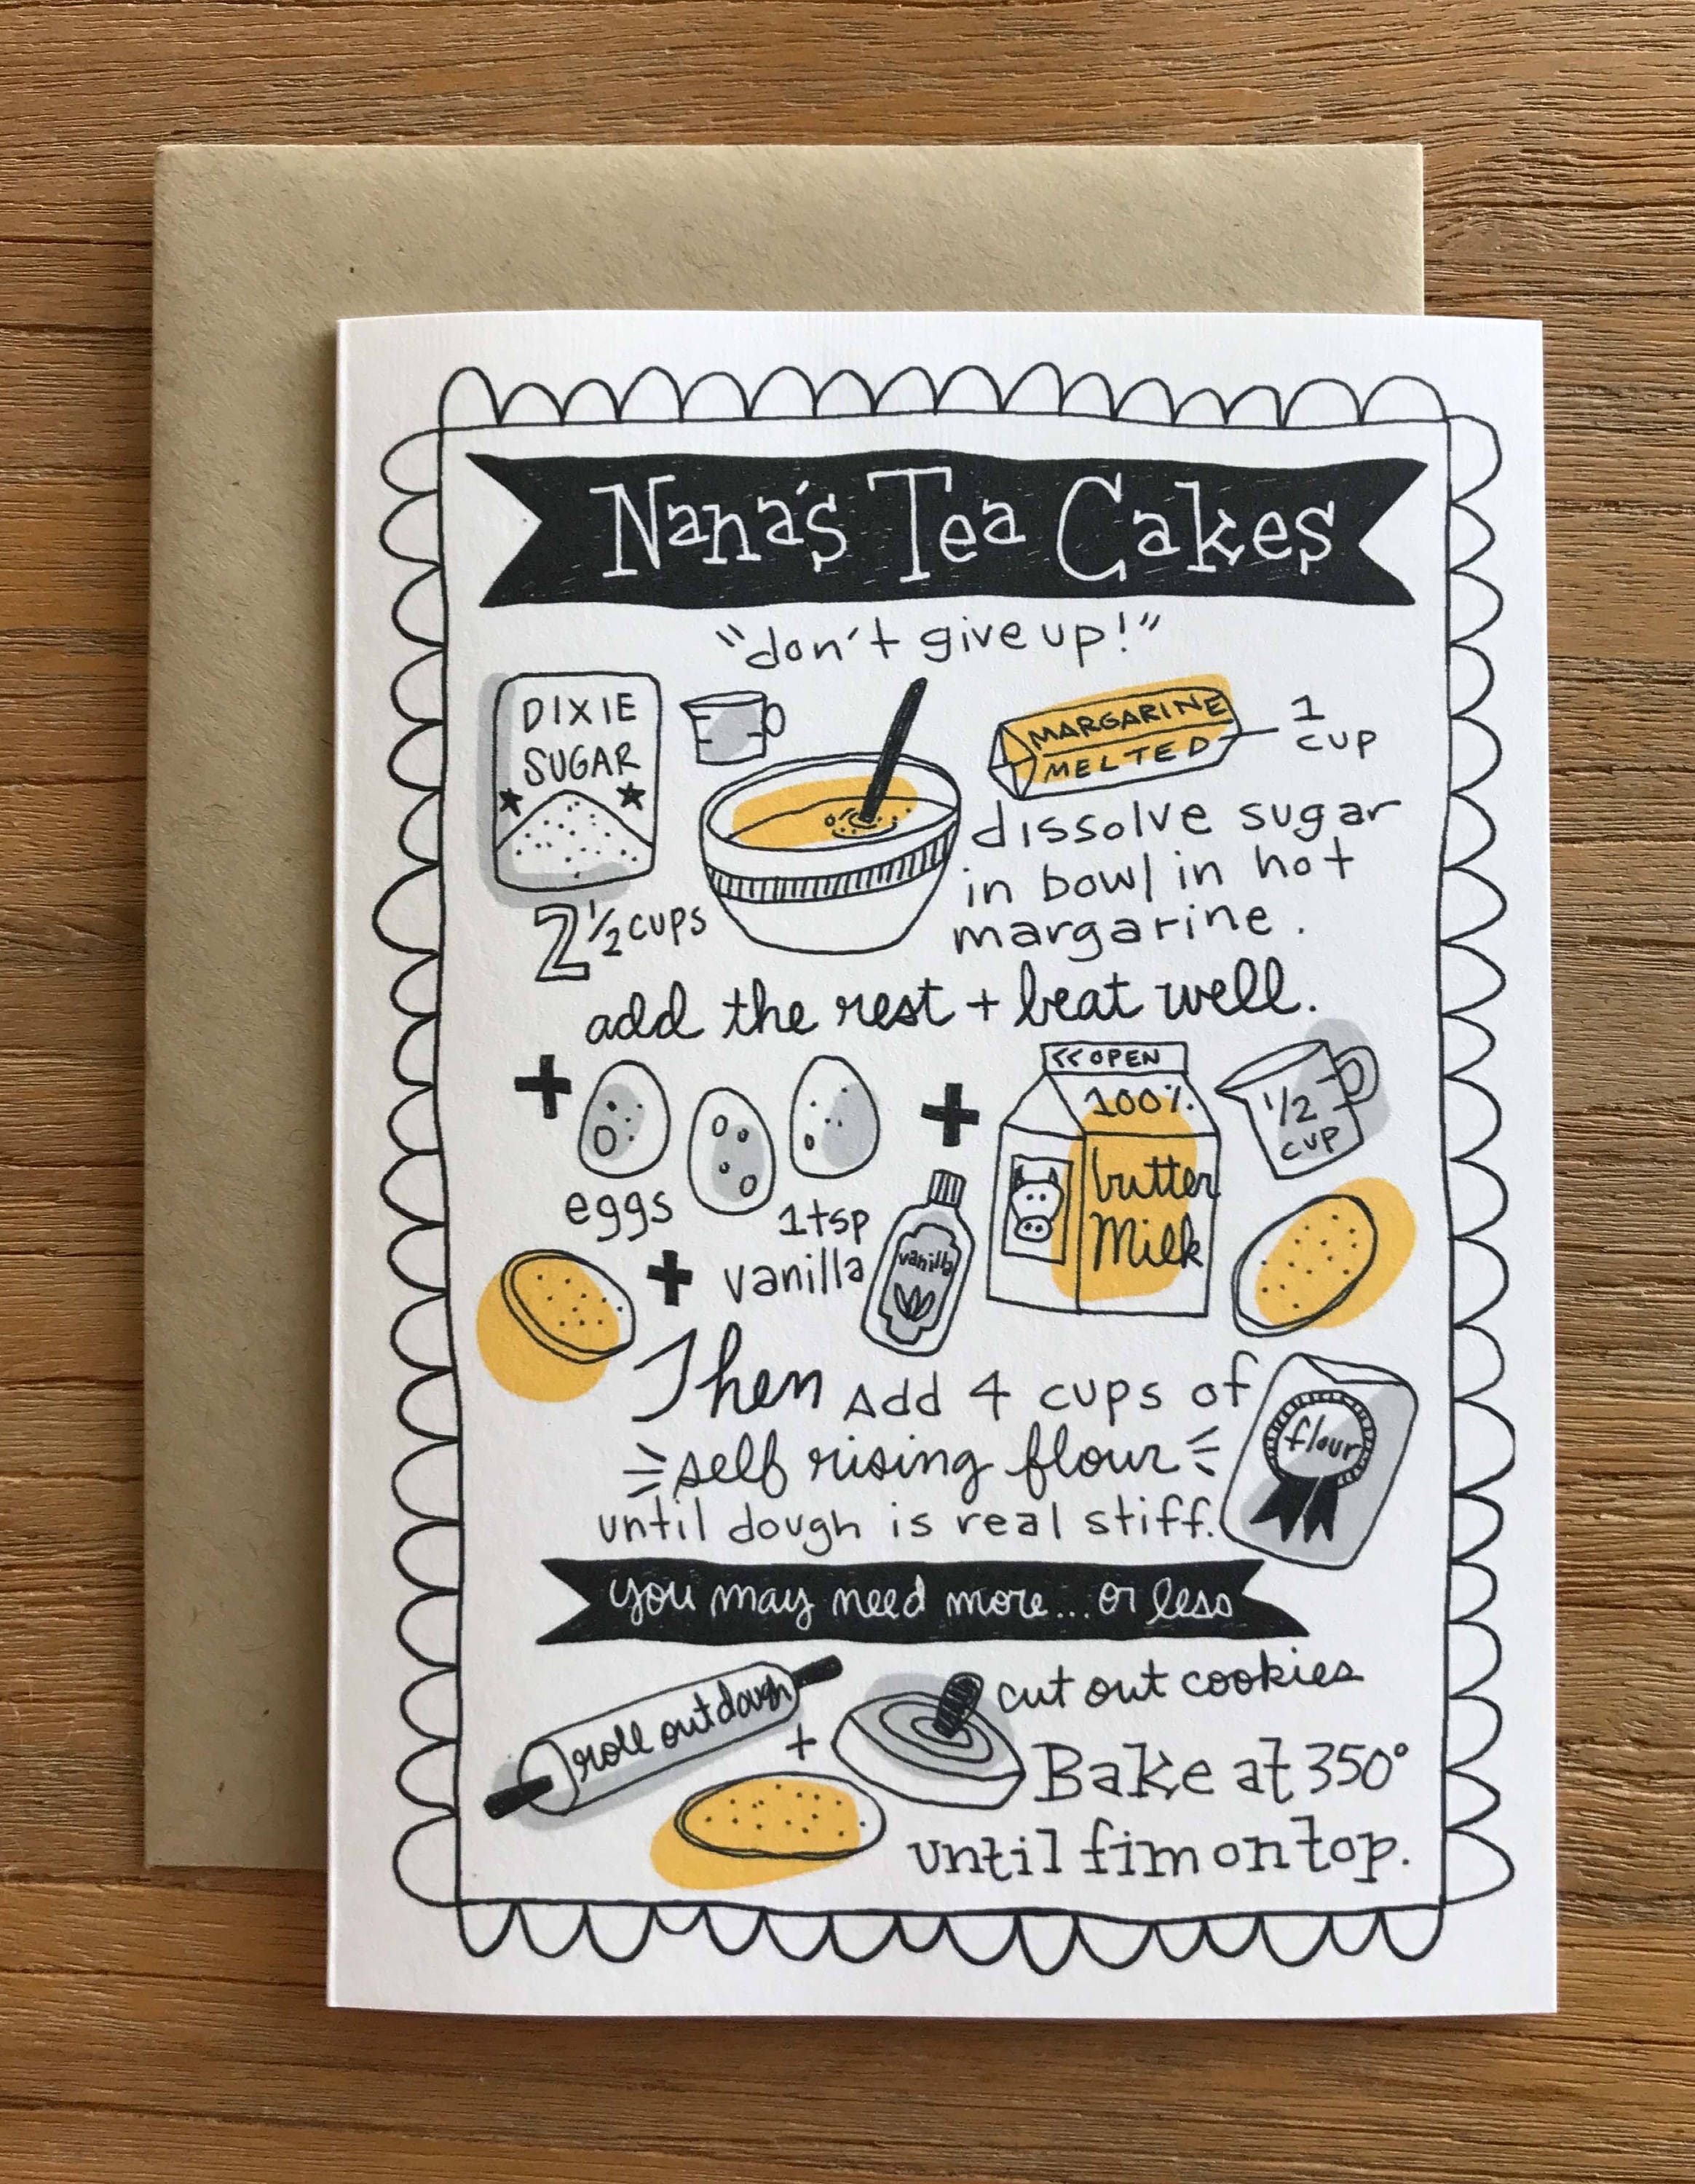 Nana's Tea Cakes
"don't give up!"
DIXIE
SUGAR
2 1/2 cups
MARGARINE
MELTED
1
cup
dissolve sugar
in bowl in hot
margarine.
add the rest + beat well.
+
eggs
+
1 tsp
vanilla
vanilla
+
<<OPEN
100%
butter
Milk
1/2
cup
Then Add 4 cups of
self rising flour
until dough is real stiff.
flour
you may need more... or less
roll out dough
+
cut out cookies
Bake at 350°
until fim on top.